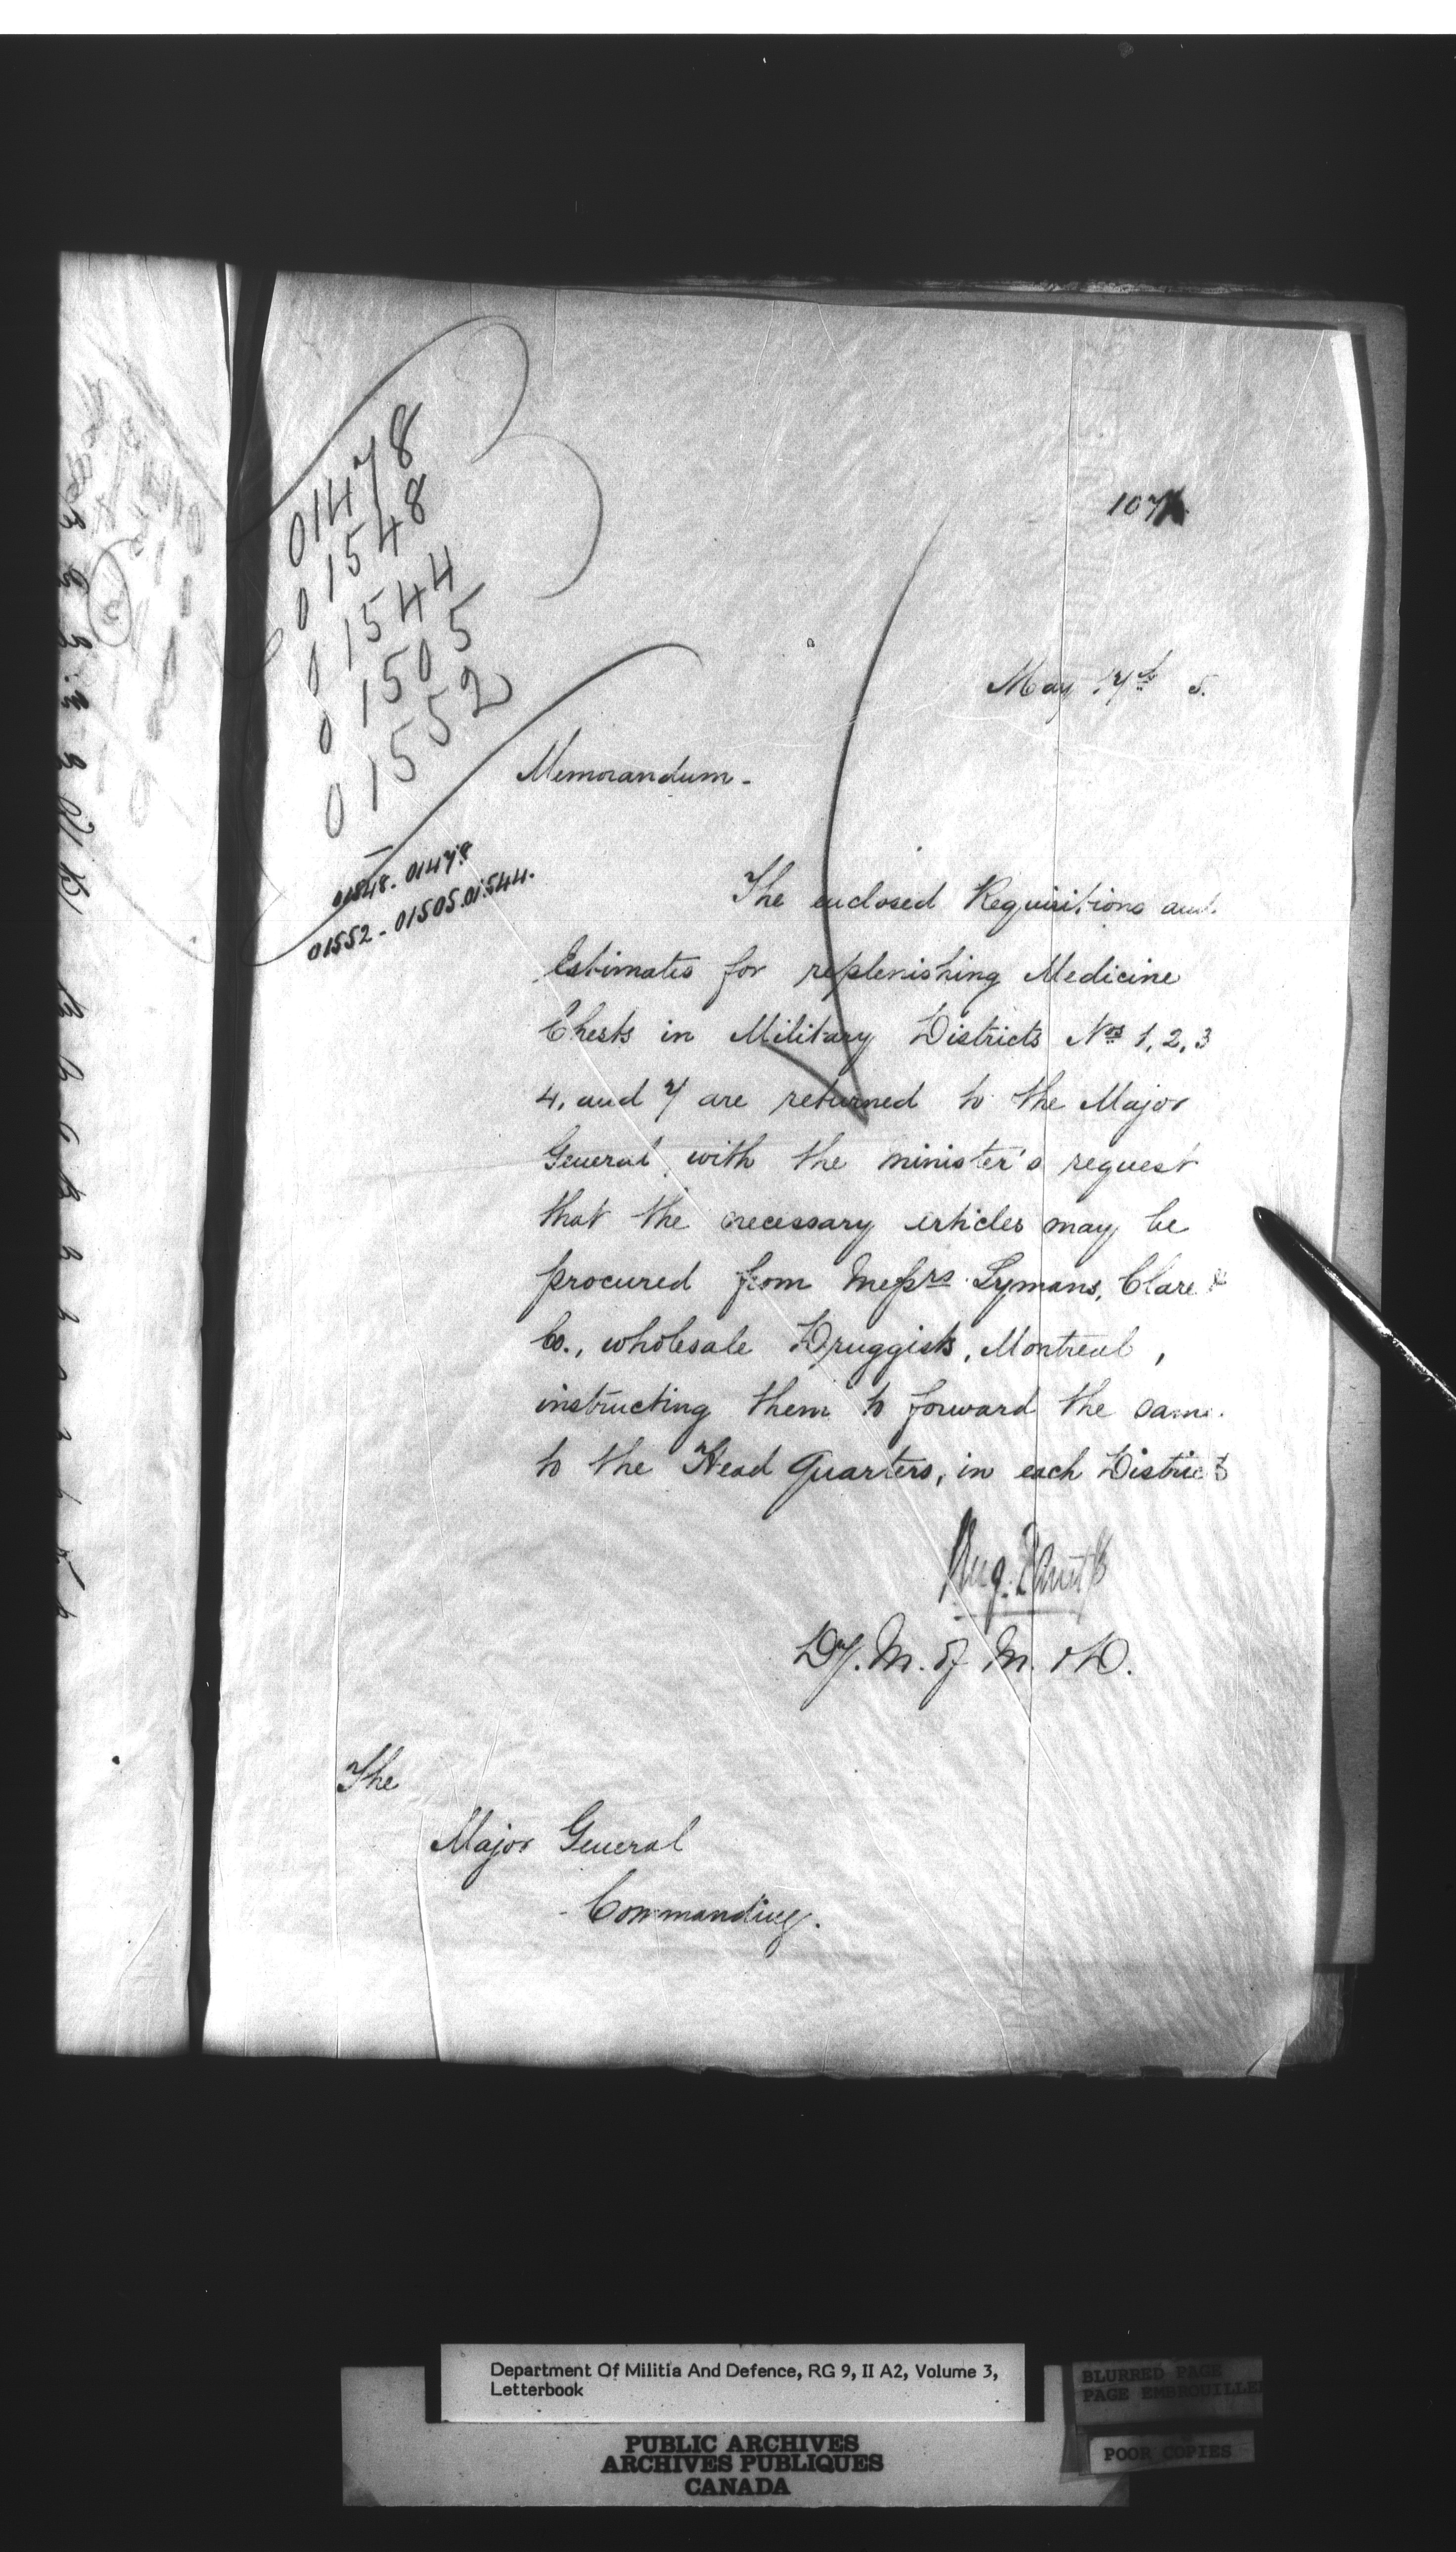 01478
01548
01544
01505
01552
107
May 17th 5.
Memorandum-
01548. 01478
01552-01505.01544.
The enclosed Requisitions and
Estimates for replenishing Medicine
Chests in Military Districts Nos 1, 2, 3
4, and 7 are returned to the Major
General with the minister's request
that the necessary articles may be
procured from Messrs Lymans, Clare &
Co., wholesale Druggists, Montreal,
instructing them to forward the same
to the Head Quarters, in each District
Dy. M. of M. & D.
The
Major General
Commanding.
Department Of Militia And Defence, RG 9, II A2, Volume 3,
Letterbook
BLURRED PAGE
PAGE EMBROUILLEE
POOR COPIES
PUBLIC ARCHIVES
ARCHIVES PUBLIQUES
CANADA